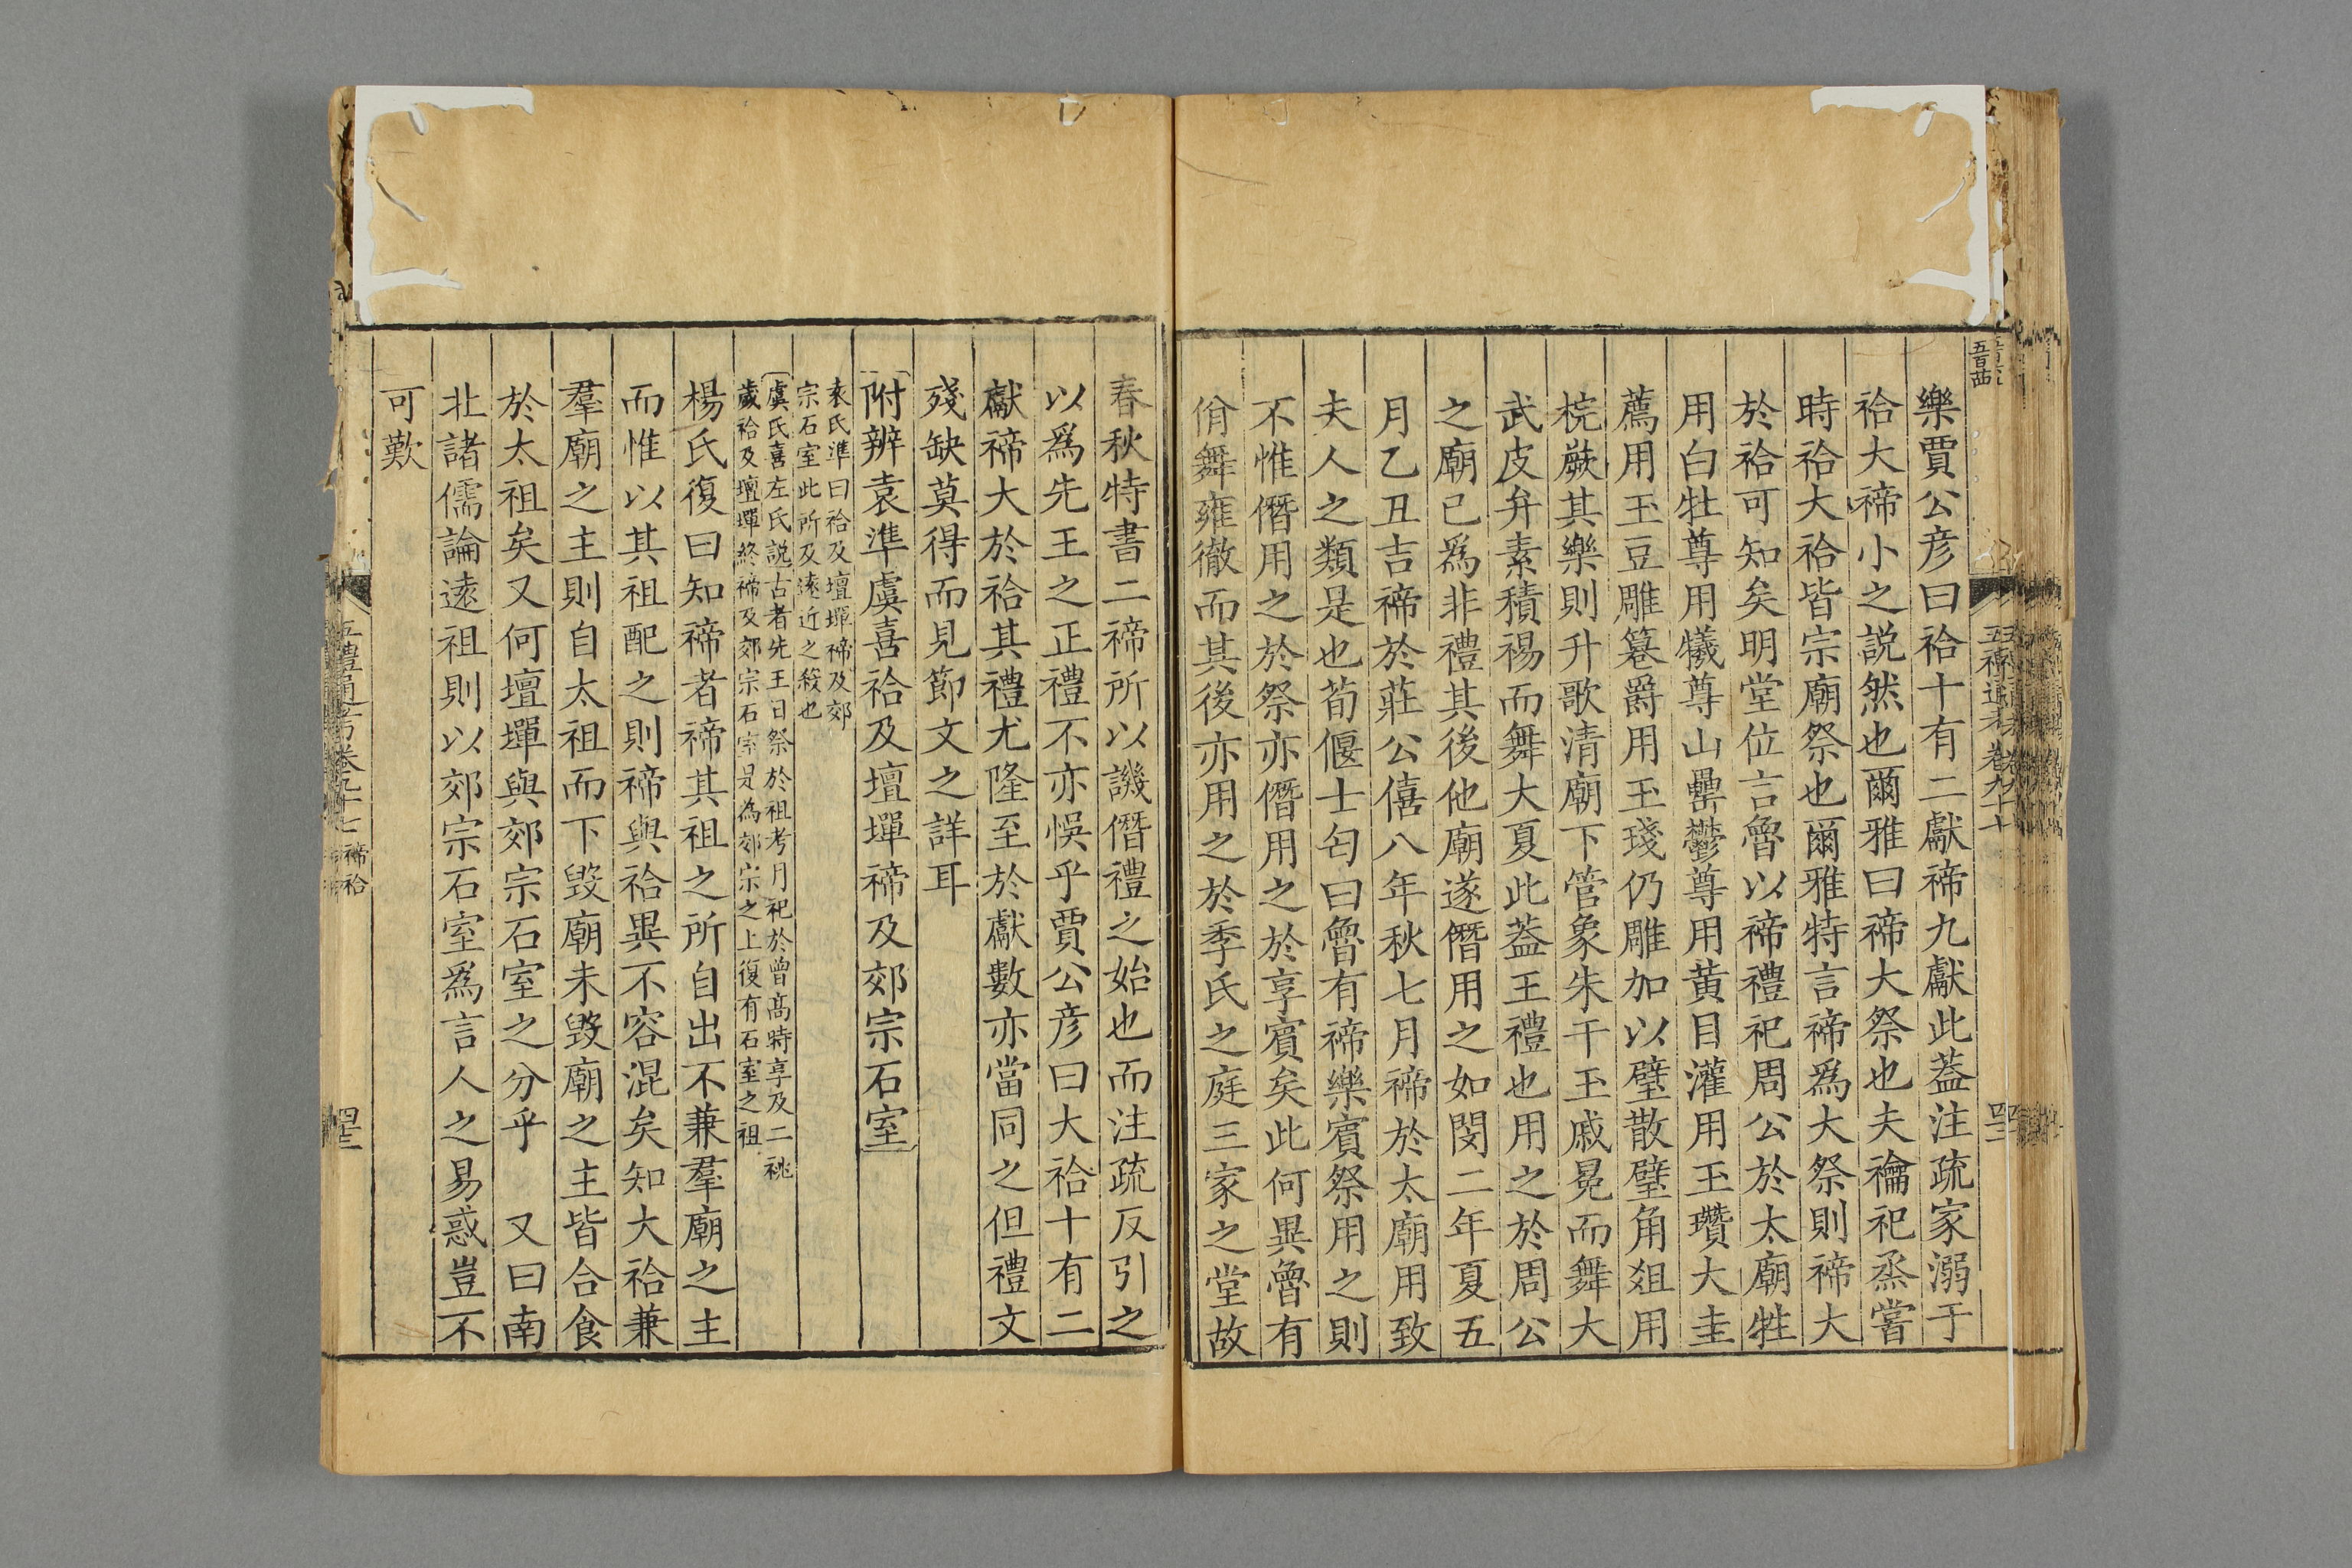 樂賈公彦曰祫十有二獻禘九獻此葢注疏家溺于
祫大禘小之説然也爾雅曰禘大祭也夫禴祀烝嘗
時祫大祫皆宗廟祭也爾雅特言禘爲大祭則禘大
於祫可知矣明堂位言魯以禘禮祀周公於太廟牲
用白牡尊用犧尊山罍鬱尊用黄目灌用玉瓚大圭
薦用玉豆雕篹爵用玉琖仍雕加以璧散璧角俎用
梡嶡其樂則升歌清廟下管象朱干玉戚冕而舞大
武皮弁素積裼而舞大夏此葢王禮也用之於周公
之廟已爲非禮其後他廟遂僭用之如閔二年夏五
月乙丑吉禘於莊公僖八年秋七月禘於太廟用致
夫人之類是也荀偃士匄曰魯有禘樂賓祭用之則
不惟僭用之於祭亦僭用之於享賓矣此何異魯有
佾舞雍徹而其後亦用之於季氏之庭三家之堂故
春秋特書二禘所以譏僭禮之始也而注疏反引之
以爲先王之正禮不亦悞乎賈公彦曰大祫十有二
獻禘大於祫其禮尤隆至於獻數亦當同之但禮文
殘缺莫得而見節文之詳耳
附辨袁準虞喜祫及壇墠禘及郊宗石室
袁氏準曰祫及壇墠禘及郊
宗石室此所及遠近之殺也
虞氏喜左氏説古者先王日祭於祖考月祀於曾高時享及二祧
歲祫及壇墠終禘及郊宗石室是為郊宗之上復有石室之祖
楊氏復曰知禘者禘其祖之所自出不兼羣廟之主
而惟以其祖配之則禘與祫異不容混矣知大祫兼
羣廟之主則自太祖而下毀廟未毀廟之主皆合食
於太祖矣又何壇墠與郊宗石室之分乎　又曰南
北諸儒論遠祖則以郊宗石室爲言人之易惑豈不
可歎
五禮通考卷九十七 禘祫